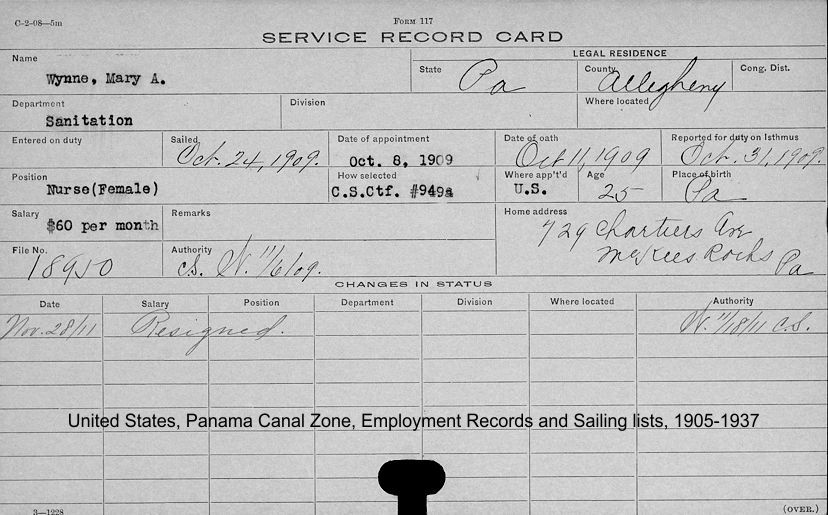 C-2-08—5m
FORM 117
SERVICE RECORD CARD
Name
Wynne, Mary A.
LEGAL RESIDENCE
State
Pa
County
Allegheny
Cong. Dist.
Department
Sanitation
Division
Where located
Entered on duty
Sailed
Oct. 24, 1909.
Date of appointment
Oct. 8, 1909
Date of oath
Oct 11, 1909
Reported for duty on Isthmus
Oct. 31, 1909.
Position
Nurse(Female)
How selected
C.S.Ctf. #949a
Where app't'd
U.S.
Age
25
Place of birth
Pa
Salary
$60 per month
Remarks
Home address
729 Chartiers Ave
McKees Rocks Pa
File No.
18950
Authority
C.S. N. 11/6/09.
CHANGES IN STATUS
Date Salary Position Department Division Where located Authority
Nov. 28/11 Resigned. N. 11/18/11 C.S.
United States, Panama Canal Zone, Employment Records and Sailing lists, 1905-1937
3—1228
(OVER.)